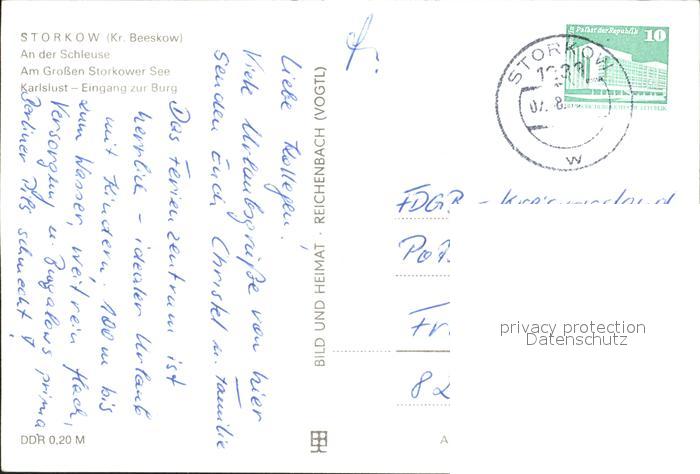 STORKOW (Kr. Beeskow)
An der Schleuse
Am Großen Storkower See
Karlslust – Eingang zur Burg
Liebe Kollegen!
Viele Urlaubsgrüße von hier
senden Euch Christel u. Familie
Das Ferienzentrum ist
herrlich - idealer Urlaub
mit Kindern. 100 m bis
zum Wasser, weit rein flach,
Versorgung u. Bungalows prima
Berliner Pils schmeckt!
DDR 0,20 M
BILD UND HEIMAT · REICHENBACH (VOGTL)
Palast der Republik 10
STORKOW
1233
W
FDGB - Kreisvorstand
Fr
82
A
privacy protection
Datenschutz